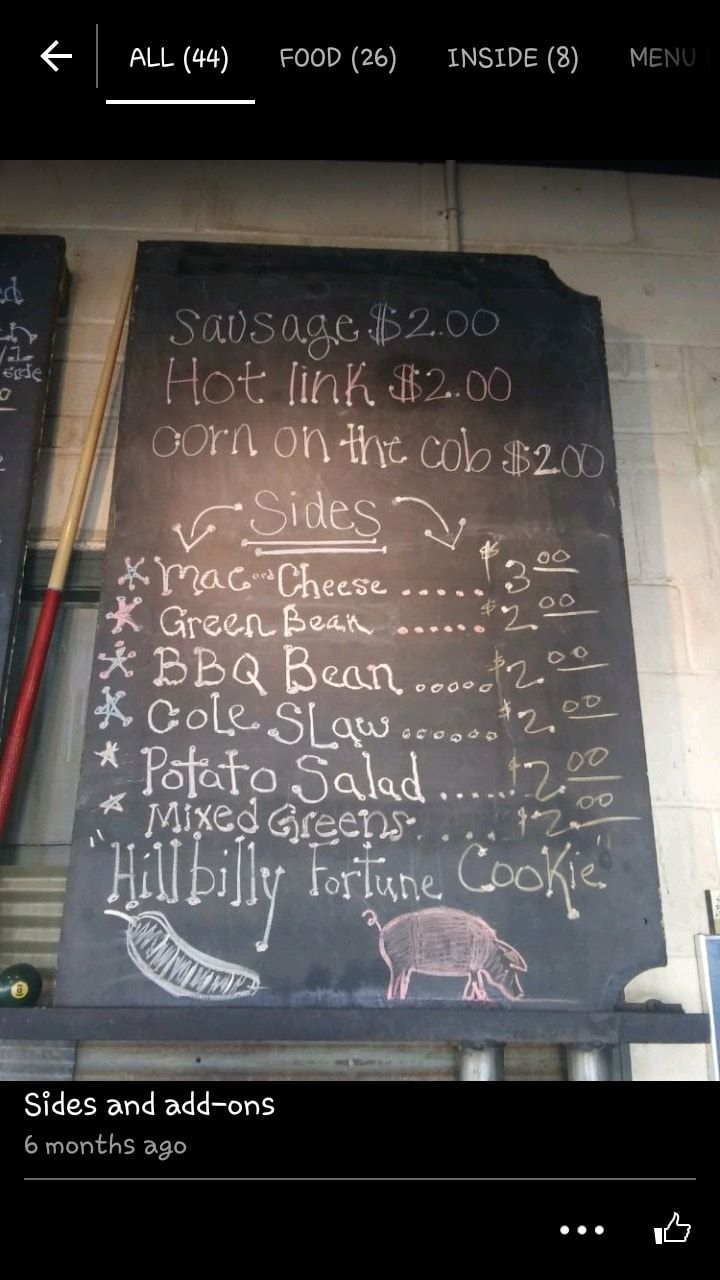 ALL (44) FOOD (26) INSIDE (8) MENU
Sausage $2.00
Hot link $2.00
corn on the cob $2.00
Sides
Mac and Cheese ..... $3.00
Green Bean ...... $2.00
BBQ Bean ..... $2.00
Cole SLaw ...... $2.00
Potato Salad ...... $2.00
Mixed Greens. .... $2.00
"Hillbilly Fortune Cookie"
8
Sides and add-ons
6 months ago